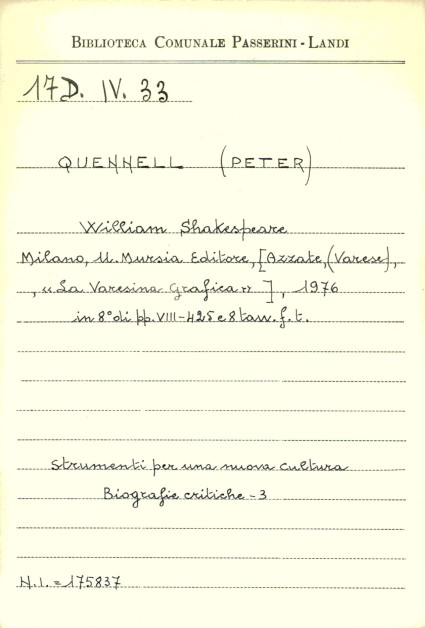 BIBLIOTECA COMUNALE PASSERINI - LANDI
17D. IV. 33
QUENNELL (PETER)
William Shakespeare
Milano, U. Mursia Editore, [Azzate, (Varese),
, « La Varesina Grafica » ], 1976
in 8° di pp. VIII-425 e 8 tavv. f. t.
Strumenti per una nuova cultura
Biografie critiche - 3
N.I. = 175837